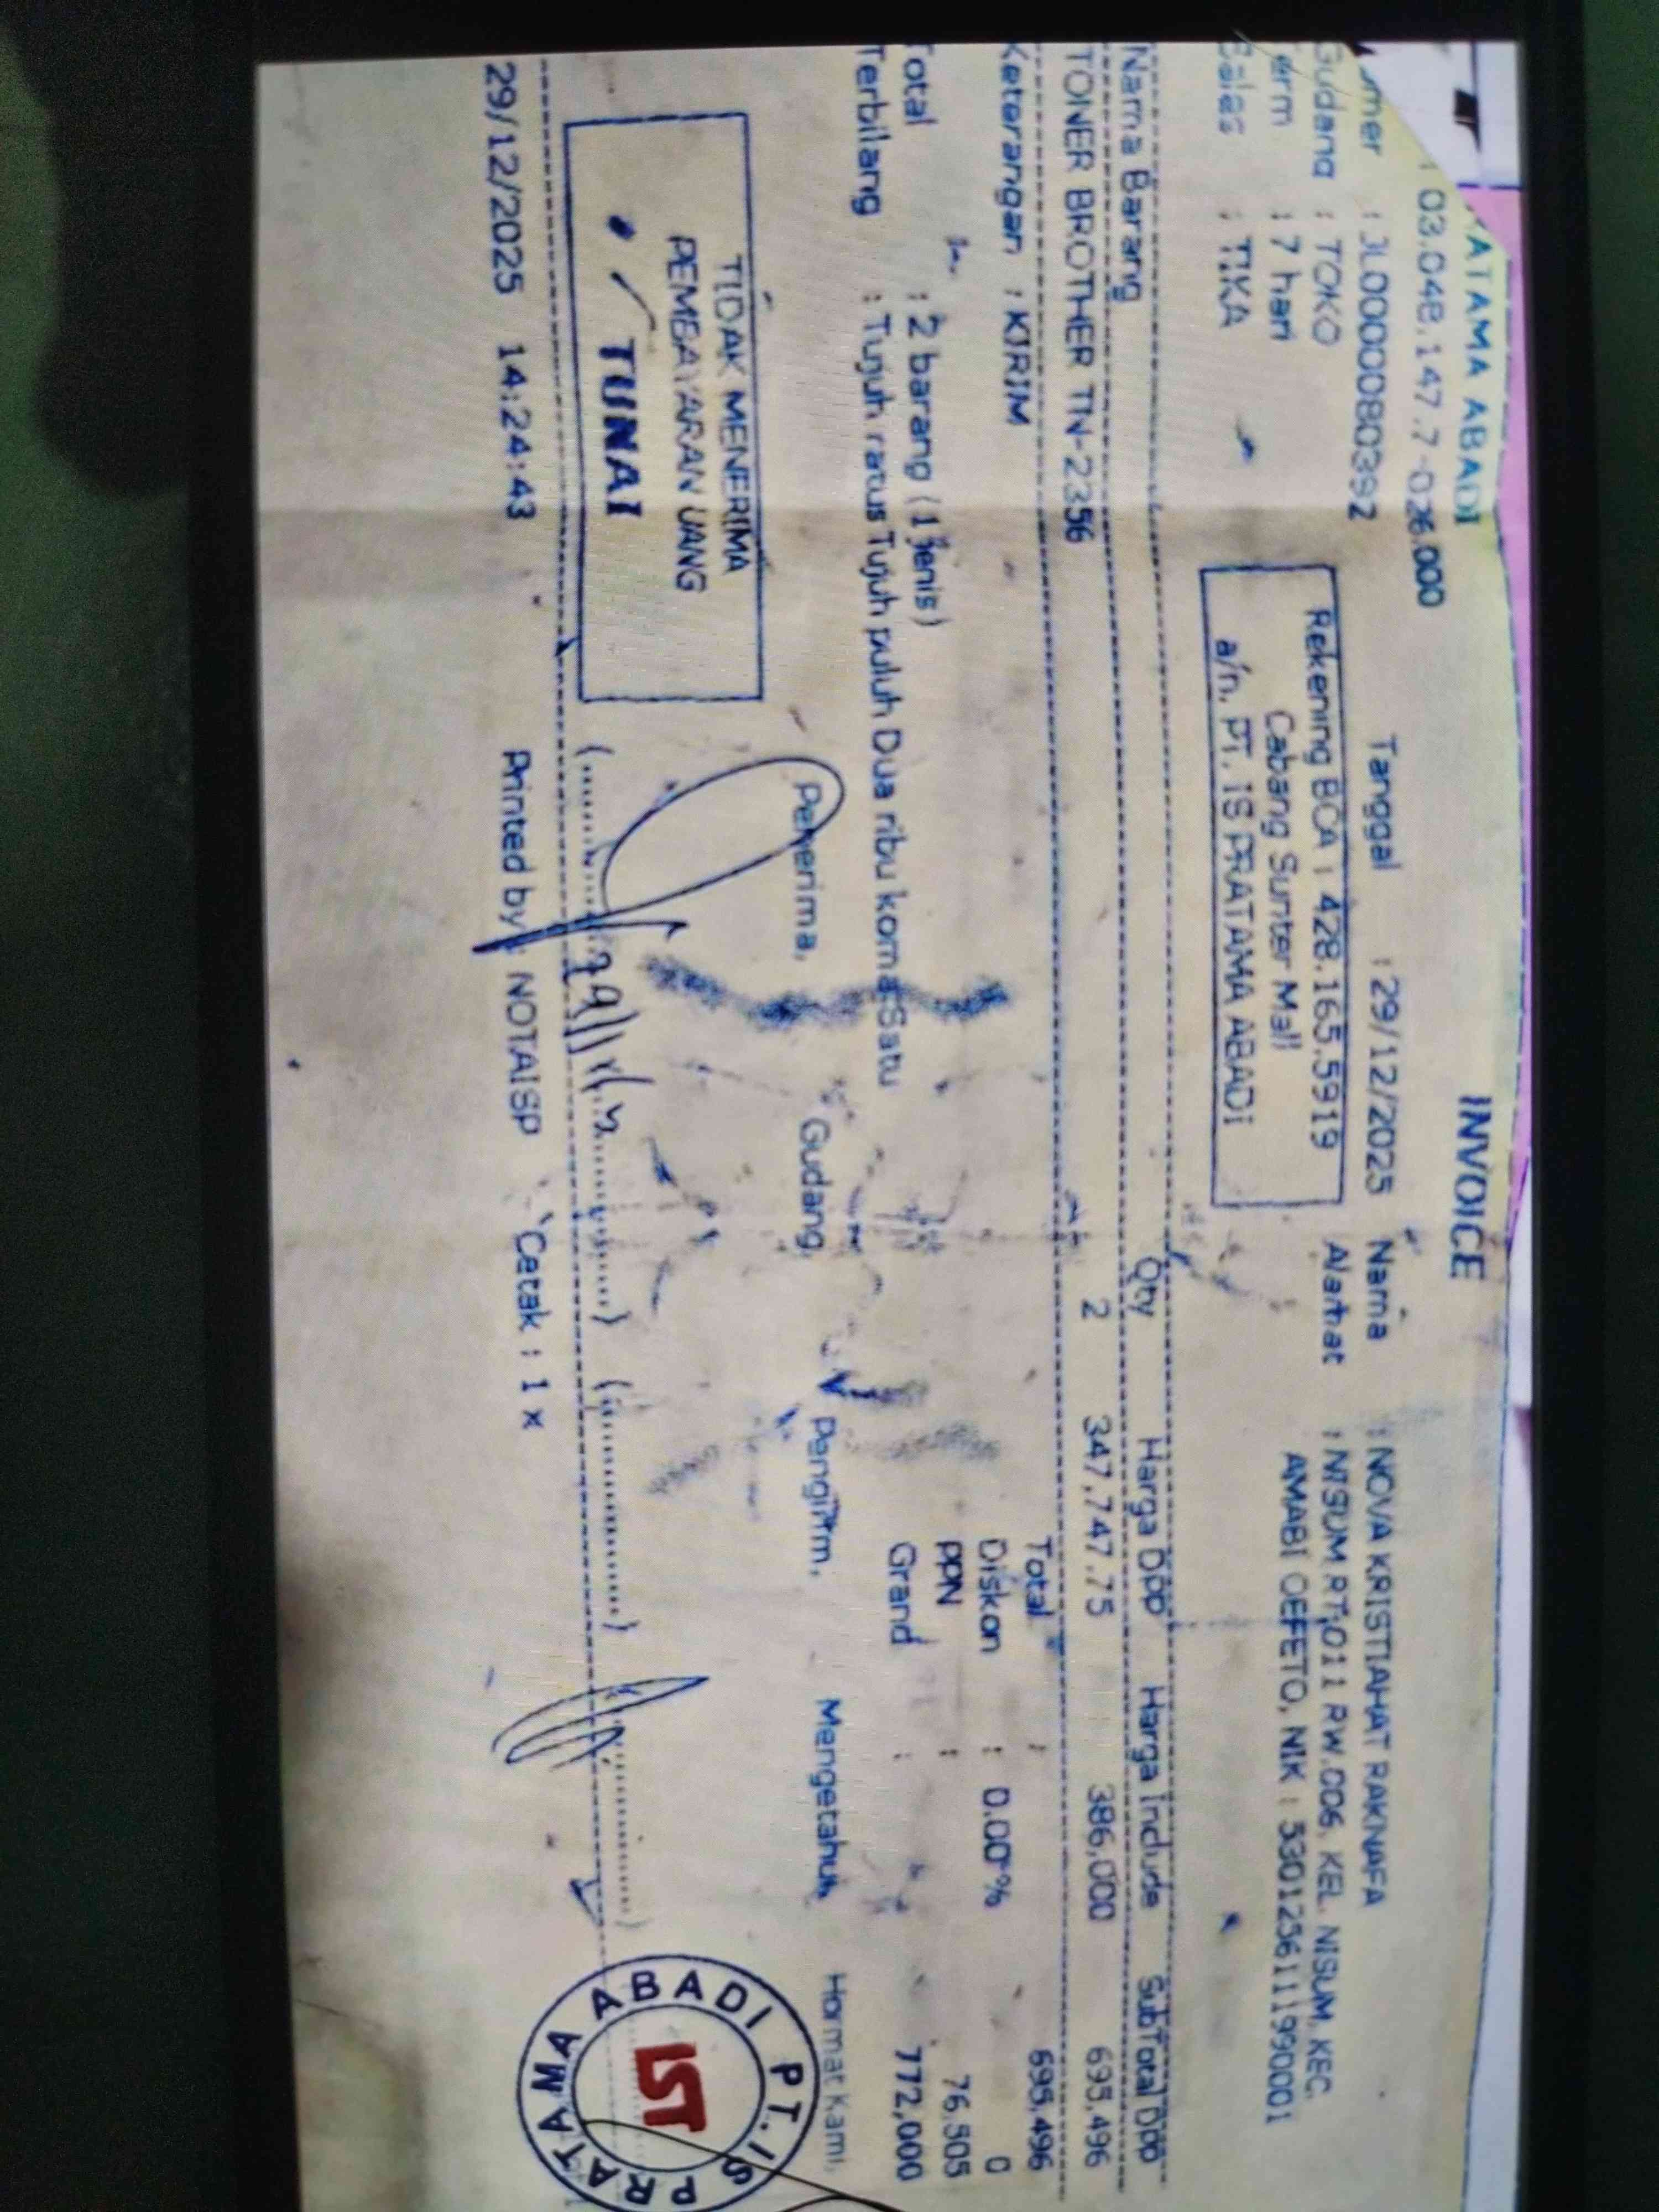 RATAMA ABADI
INVOICE
: 03.048.147.7-026.000
: JL00000803392
Tanggal : 29/12/2025
Nama : NOVA KRISTIAHAT RAKNAFA
Gudang : TOKO
Rekening BCA : 428.165.5919
Alamat : NISUM RT.011 RW.006, KEL. NISUM, KEC.
erm : 7 hari
Cabang Sunter Mall
AMABI OEFETO, NIK : 5301256111990001
Sales : TIKA
a/n. PT. IS PRATAMA ABADI
Nama Barang Qty Harga Dpp Harga Include SubTotal Dpp
TONER BROTHER TN-2356 2 347,747.75 386,000 695,496
Keterangan : KIRIM
Total : 695,496
Diskon : 0.00% 0
Total : 2 barang (1 jenis)
PPN : 76,505
Terbilang : Tujuh ratus Tujuh puluh Dua ribu koma Satu
Grand : 772,000
Penerima, Gudang, Pengirim, Mengetahui, Hormat Kami,
TIDAK MENERIMA
PEMBAYARAN UANG
TUNAI
PT. IS PRATAMA ABADI
IST
29/12/2025 14:24:43 Printed by : NOTAISP Cetak : 1 x